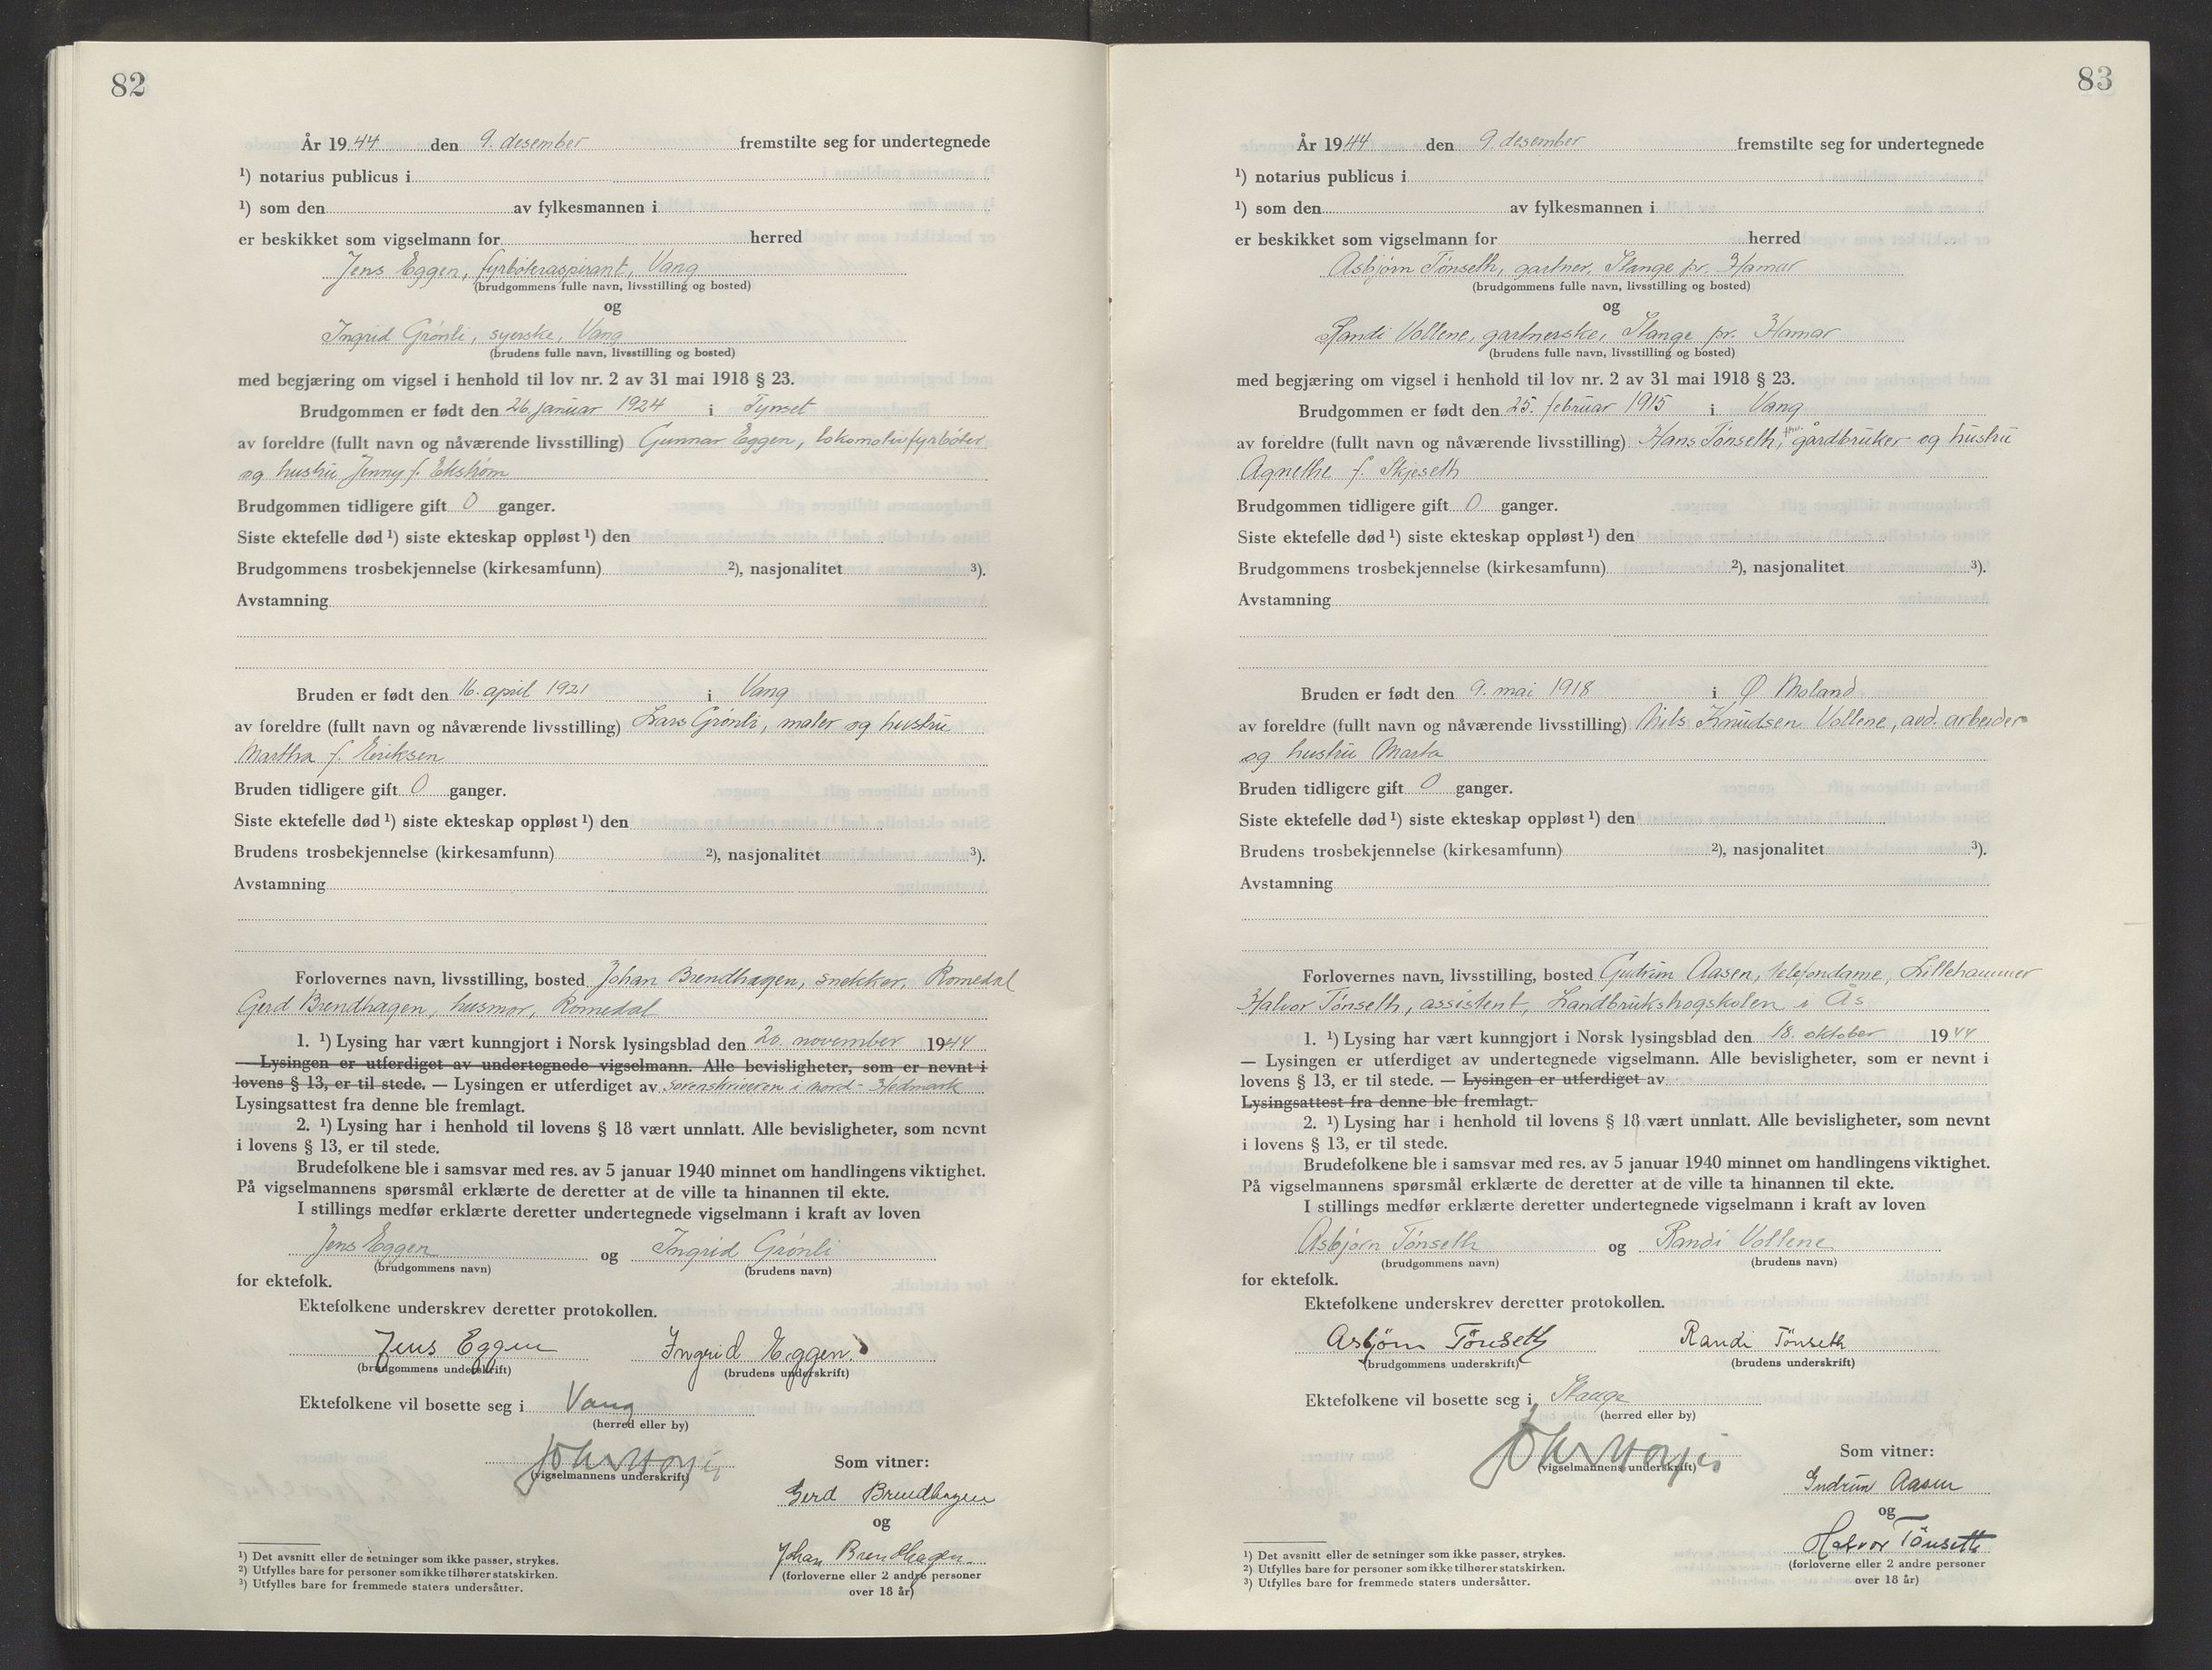 82
År 1944 den 9. desember fremstilte seg for undertegnede
¹) notarius publicus i
¹) som den av fylkesmannen i
er beskikket som vigselmann for herred
Jens Eggen, fyrbøteraspirant, Vang
(brudgommens fulle navn, livsstilling og bosted)
og
Ingrid Grønli, syerske, Vang
(brudens fulle navn, livsstilling og bosted)
med begjæring om vigsel i henhold til lov nr. 2 av 31 mai 1918 § 23.
Brudgommen er født den 26. januar 1924 i Tynset
av foreldre (fullt navn og nåværende livsstilling) Gunnar Eggen, lokomotivfyrbøter
og hustru Jenny f. Ekstrøm
Brudgommen tidligere gift 0 ganger.
Siste ektefelle død ¹) siste ekteskap oppløst ¹) den
Brudgommens trosbekjennelse (kirkesamfunn) ²), nasjonalitet ³).
Avstamning
Bruden er født den 16. april 1921 i Vang
av foreldre (fullt navn og nåværende livsstilling) Lars Grønli, maler og hustru
Martha f. Eriksen
Bruden tidligere gift 0 ganger.
Siste ektefelle død ¹) siste ekteskap oppløst ¹) den
Brudens trosbekjennelse (kirkesamfunn) ²), nasjonalitet ³).
Avstamning
Forlovernes navn, livsstilling, bosted Johan Brendhagen, snekker, Romedal
Gerd Brendhagen, husmor, Romedal
1. ¹) Lysing har vært kunngjort i Norsk lysingsblad den 20. november 1944
— Lysingen er utferdiget av undertegnede vigselmann. Alle bevisligheter, som er nevnt i
lovens § 13, er til stede. — Lysingen er utferdiget av sorenskriveren i Nord-Hedmark
Lysingsattest fra denne ble fremlagt.
2. ¹) Lysing har i henhold til lovens § 18 vært unnlatt. Alle bevisligheter, som nevnt
i lovens § 13, er til stede.
Brudefolkene ble i samsvar med res. av 5 januar 1940 minnet om handlingens viktighet.
På vigselmannens spørsmål erklærte de deretter at de ville ta hinannen til ekte.
I stillings medfør erklærte deretter undertegnede vigselmann i kraft av loven
Jens Eggen og Ingrid Grønli
(brudgommens navn) (brudens navn)
for ektefolk.
Ektefolkene underskrev deretter protokollen.
Jens Eggen Ingrid Eggen.
(brudgommens underskrift) (brudens underskrift)
Ektefolkene vil bosette seg i Vang
(herred eller by)
(vigselmannens underskrift) Som vitner:
Gerd Brendhagen
og
Johan Brendhagen.
(forloverne eller 2 andre personer
over 18 år)
¹) Det avsnitt eller de setninger som ikke passer, strykes.
²) Utfylles bare for personer som ikke tilhører statskirken.
³) Utfylles bare for fremmede staters undersåtter.
83
År 1944 den 9. desember fremstilte seg for undertegnede
¹) notarius publicus i
¹) som den av fylkesmannen i
er beskikket som vigselmann for herred
Asbjørn Tønseth, gartner, Stange pr. Hamar
(brudgommens fulle navn, livsstilling og bosted)
og
Randi Vollene, gartnerske, Stange pr. Hamar
(brudens fulle navn, livsstilling og bosted)
med begjæring om vigsel i henhold til lov nr. 2 av 31 mai 1918 § 23.
Brudgommen er født den 25. februar 1915 i Vang
av foreldre (fullt navn og nåværende livsstilling) Hans Tønseth, fhv. gårdbruker og hustru
Agnethe f. Skjeseth
Brudgommen tidligere gift 0 ganger.
Siste ektefelle død ¹) siste ekteskap oppløst ¹) den
Brudgommens trosbekjennelse (kirkesamfunn) ²), nasjonalitet ³).
Avstamning
Bruden er født den 9. mai 1918 i Ø Moland
av foreldre (fullt navn og nåværende livsstilling) Nils Knudsen Vollene, avd. arbeider
og hustru Marta
Bruden tidligere gift 0 ganger.
Siste ektefelle død ¹) siste ekteskap oppløst ¹) den
Brudens trosbekjennelse (kirkesamfunn) ²), nasjonalitet ³).
Avstamning
Forlovernes navn, livsstilling, bosted Gudrun Aasen, telefondame, Lillehammer
Halvor Tønseth, assistent, Landbrukshøgskolen i Ås
1. ¹) Lysing har vært kunngjort i Norsk lysingsblad den 18. oktober 1944
— Lysingen er utferdiget av undertegnede vigselmann. Alle bevisligheter, som er nevnt i
lovens § 13, er til stede. — Lysingen er utferdiget av
Lysingsattest fra denne ble fremlagt.
2. ¹) Lysing har i henhold til lovens § 18 vært unnlatt. Alle bevisligheter, som nevnt
i lovens § 13, er til stede.
Brudefolkene ble i samsvar med res. av 5 januar 1940 minnet om handlingens viktighet.
På vigselmannens spørsmål erklærte de deretter at de ville ta hinannen til ekte.
I stillings medfør erklærte deretter undertegnede vigselmann i kraft av loven
Asbjørn Tønseth og Randi Vollene
(brudgommens navn) (brudens navn)
for ektefolk.
Ektefolkene underskrev deretter protokollen.
Asbjørn Tönseth Randi Tönseth
(brudgommens underskrift) (brudens underskrift)
Ektefolkene vil bosette seg i Stange
(herred eller by)
(vigselmannens underskrift) Som vitner:
Gudrun Aasen
og
Halvor Tönseth
(forloverne eller 2 andre personer
over 18 år)
¹) Det avsnitt eller de setninger som ikke passer, strykes.
²) Utfylles bare for personer som ikke tilhører statskirken.
³) Utfylles bare for fremmede staters undersåtter.